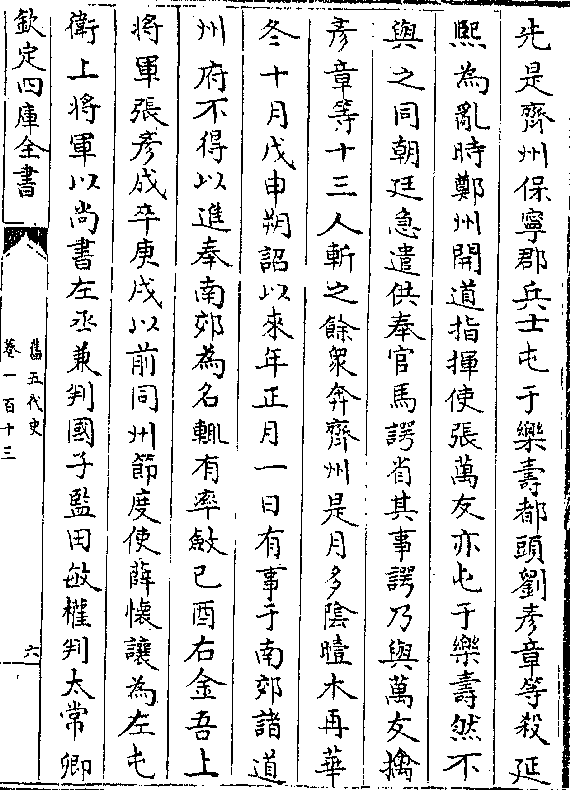 先是齊州保寧郡兵士屯于樂壽都頭劉彥章等殺延
熙為亂時鄭州開道指揮使張萬友亦屯于樂壽然不
與之同朝廷急遣供奉官馬諤省其事諤乃與萬友擒
彥章等十三人斬之餘衆奔齊州是月多陰曀木再華
冬十月戊申朔詔以來年正月一日有事于南郊諸道
州府不得以進奉南郊為名輒有率斂己酉右金吾上
將軍張彥成卒庚戌以前同州節度使薛懷讓為左屯
衛上將軍以尚書左丞兼判國子監田敏權判太常卿
欽定四庫全書
舊五代史
卷一百十三
六